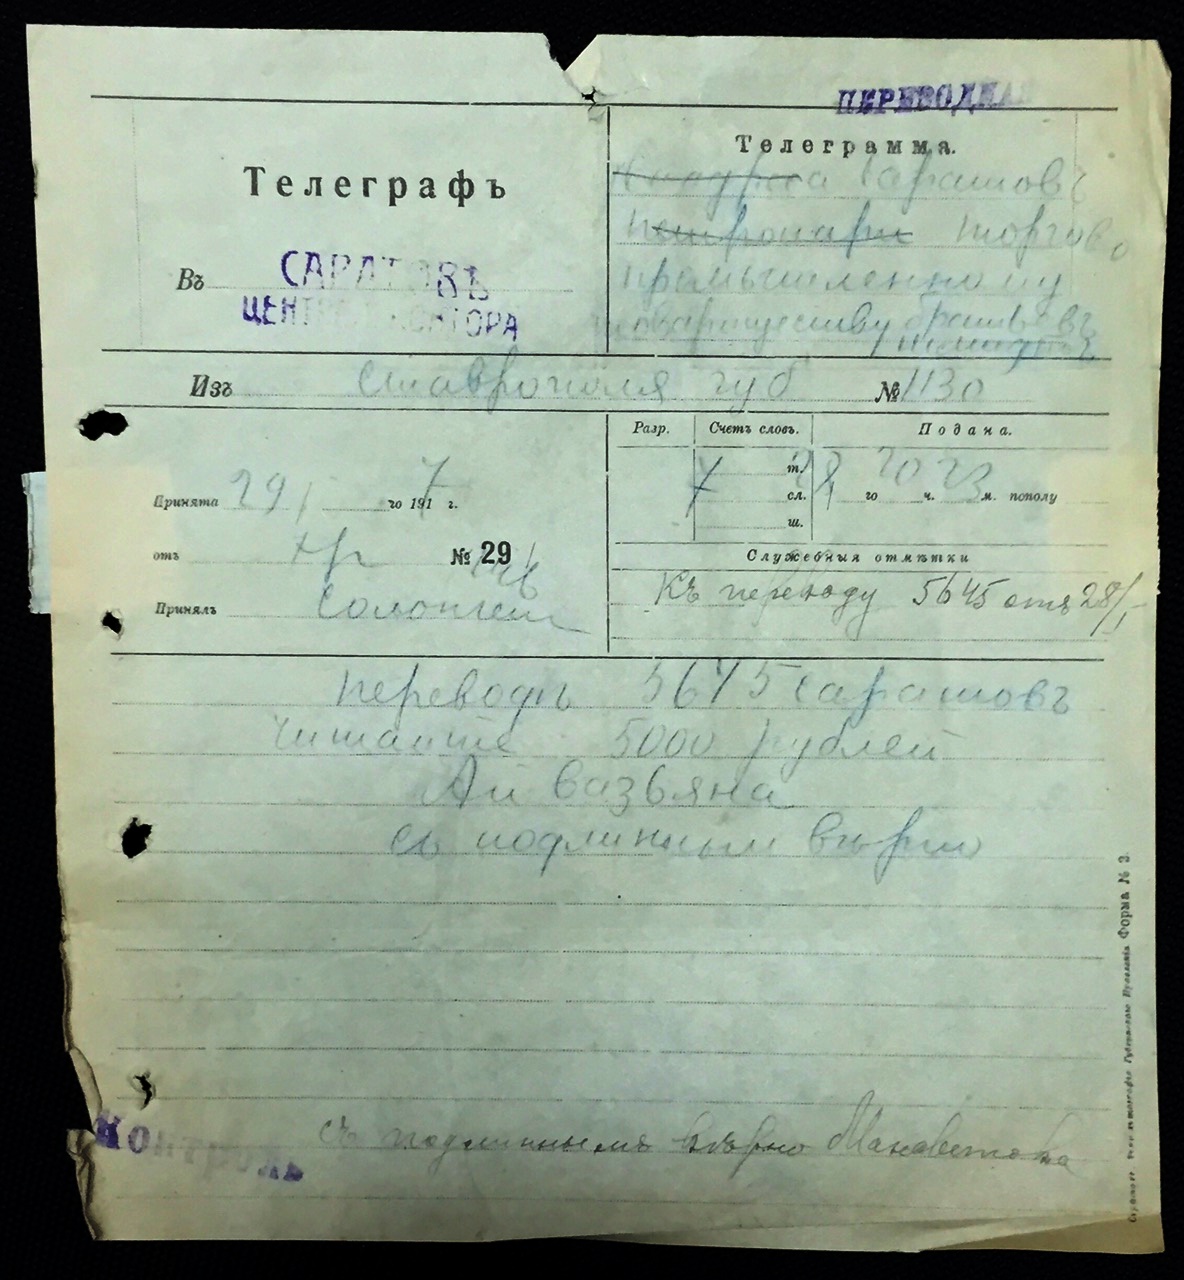 ПЕРЕВОДНАЯ
Телеграфъ
Телеграмма.
Саратовъ
Торгово
Въ САРАТОВЪ
промышленному
ЦЕНТР КОНТОРА
товариществу братьевъ
Изъ Ставрополя губ № 1130
Разр. Счетъ словъ. Подана.
7 т. 28 20 23
Принята 29/1 го 1917 г.
сл. го ч. м. пополу
ш.
отъ № 29
Служебныя отмѣтки
Къ переводу 5645 отъ 28/I
Принялъ
переводъ 5645 Саратовъ
читайте 5000 рублей
Айвазьяна
съ подлиннымъ вѣрно
съ подлиннымъ вѣрно
Контроль
Форма № 2.